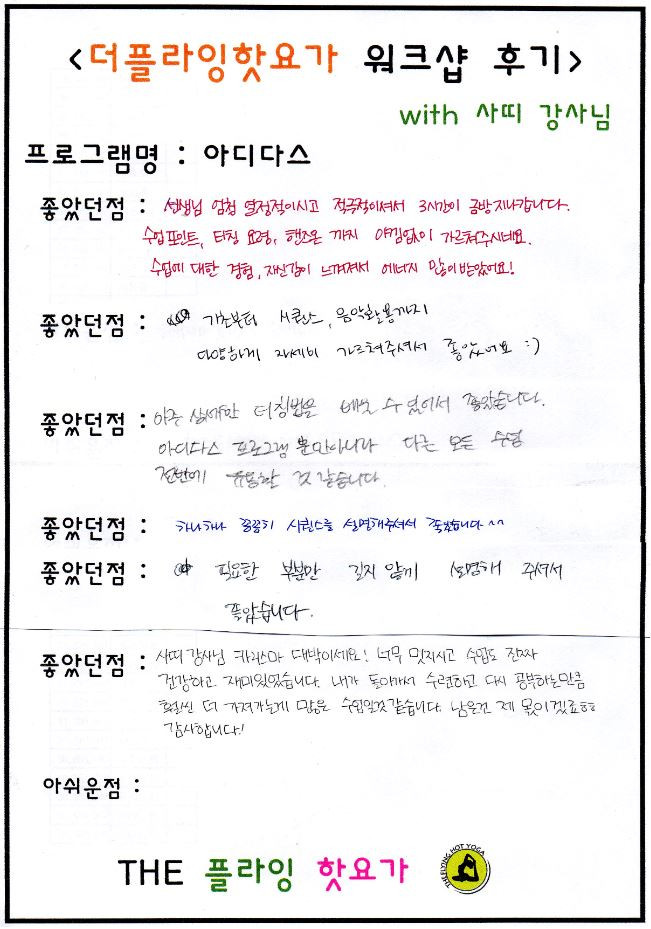 <더플라잉핫요가 워크샵 후기>
with 사띠 강사님
프로그램명 : 아디다스
좋았던점 : 선생님 엄청 열정적이시고 적극적이셔서 3시간이 금방지나갑니다.
수업포인트, 터칭 요령, 핸즈온 까지 아낌없이 가르쳐주시네요.
수업에 대한 경험, 자신감이 느껴져서 에너지 많이받았어요!
좋았던점 : 기초부터 시퀀스, 음악활용까지
다양하게 자세히 가르쳐주셔서 좋았어요 :)
좋았던점 : 아주 상세한 터칭법을 배울 수 있어서 좋았습니다.
아디다스 프로그램 뿐만아니라 다른 모든 수업
전반에 유용할 것 같습니다.
좋았던점 : 하나하나 꼼꼼히 시퀀스를 설명해주셔서 좋았습니다^^
좋았던점 : 필요한 부분만 길지 않게 설명해 주셔서
좋았습니다.
좋았던점 : 사띠 강사님 카리스마 대박이세요! 너무 멋지시고 수업도 진짜
건강하고 재미있었습니다. 내가 돌아가서 수련하고 다시 공부하는만큼
훨씬 더 가져가는게 많을 수업일것같습니다. 남은건 제 몫이겠죠ㅎㅎ
감사합니다!
아쉬운점 :
THE 플라잉 핫요가
THE FLYING HOT YOGA